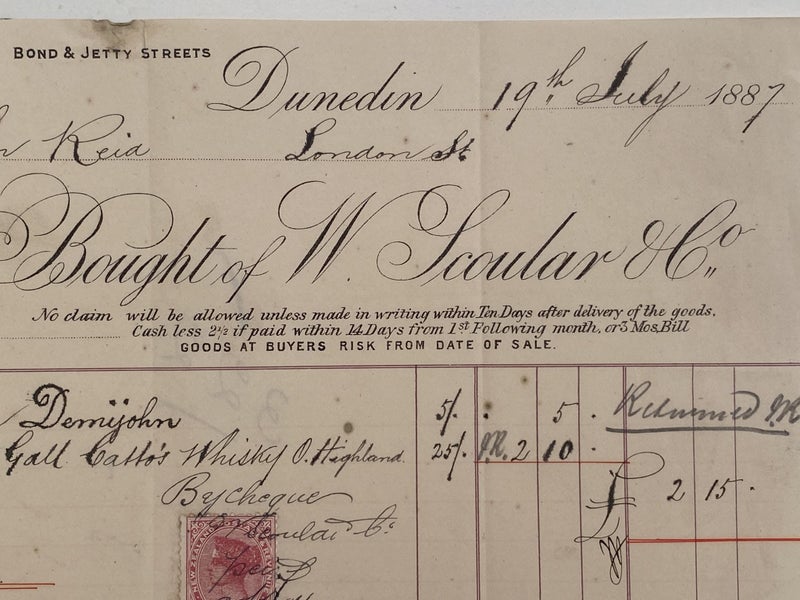 BOND & JETTY STREETS
Dunedin 19th July 1887
Reid London St
Bought of W. Scoular & Co
No claim will be allowed unless made in writing within Ten Days after delivery of the goods.
Cash less 2½ if paid within 14 Days from 1st Following month, or 3 Mos. Bill
GOODS AT BUYERS RISK FROM DATE OF SALE.
Demijohn 5/. . 5 . Returned J.R.
Gall Catto's Whisky O. Highland 25/. J.R. 2 10 .
£ 2 15 .
By cheque
Scoular Co
NEW ZEALAND